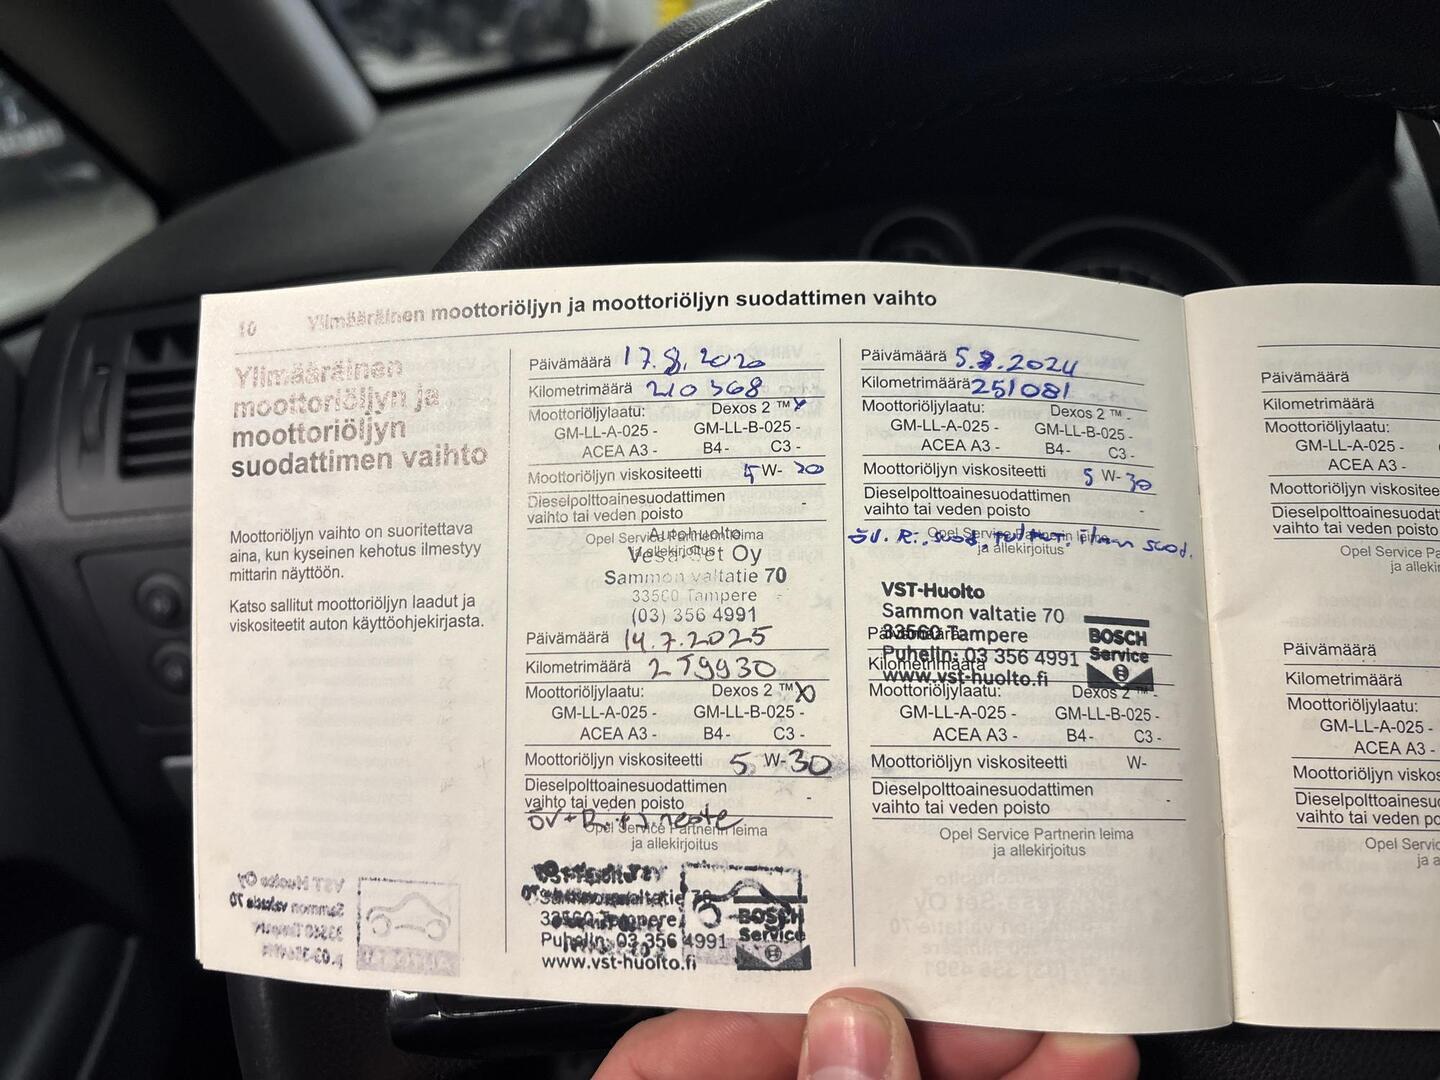 10 Ylimääräinen moottoriöljyn ja moottoriöljyn suodattimen vaihto
Ylimääräinen
moottoriöljyn ja
moottoriöljyn
suodattimen vaihto
Moottoriöljyn vaihto on suoritettava
aina, kun kyseinen kehotus ilmestyy
mittarin näyttöön.
Katso sallitut moottoriöljyn laadut ja
viskositeetit auton käyttöohjekirjasta.
Päivämäärä 17.8.2020
Kilometrimäärä 210368
Moottoriöljylaatu: Dexos 2 ™ x
GM-LL-A-025 - GM-LL-B-025 -
ACEA A3 - B4- C3 -
Moottoriöljyn viskositeetti 5 W- 20
Dieselpolttoainesuodattimen
vaihto tai veden poisto -
Autohuolto
Opel Service Partnerin leima
ja allekirjoitus
Vesa-Set Oy
Sammon valtatie 70
33560 Tampere
(03) 356 4991
Päivämäärä 14.7.2025
Kilometrimäärä 259930
Moottoriöljylaatu: Dexos 2 ™ x
GM-LL-A-025 - GM-LL-B-025 -
ACEA A3 - B4- C3 -
Moottoriöljyn viskositeetti 5 W- 30
Dieselpolttoainesuodattimen
vaihto tai veden poisto -
ÖV+R. + J neste
Opel Service Partnerin leima
ja allekirjoitus
Sammon valtatie 70
33560 Tampere
BOSCH
Puhelin: 03 356 4991
Service
www.vst-huolto.fi
Päivämäärä 5.8.2024
Kilometrimäärä 251081
Moottoriöljylaatu: Dexos 2 ™ -
GM-LL-A-025 - GM-LL-B-025 -
ACEA A3 - B4- C3 -
Moottoriöljyn viskositeetti 5 W- 30
Dieselpolttoainesuodattimen
vaihto tai veden poisto -
Opel Service Partnerin leima
ja allekirjoitus
öv. R. suod. ilman suod.
VST-Huolto
Sammon valtatie 70
33560 Tampere
Päivämäärä
BOSCH
Puhelin: 03 356 4991
Service
Kilometrimäärä
www.vst-huolto.fi
Moottoriöljylaatu: Dexos 2 ™ -
GM-LL-A-025 - GM-LL-B-025 -
ACEA A3 - B4- C3 -
Moottoriöljyn viskositeetti W-
Dieselpolttoainesuodattimen
vaihto tai veden poisto -
Opel Service Partnerin leima
ja allekirjoitus
VST Huolto Oy
Sammon valtatie 70
33560 Tampere
Päivämäärä
Kilometrimäärä
Moottoriöljylaatu:
GM-LL-A-025 -
ACEA A3 -
Moottoriöljyn viskositee
Dieselpolttoainesuodatti
vaihto tai veden poisto
Opel Service Pa
ja allekir
Päivämäärä
Kilometrimäärä
Moottoriöljylaatu:
GM-LL-A-025 -
ACEA A3 -
Moottoriöljyn viskos
Dieselpolttoainesuo
vaihto tai veden po
Opel Servic
ja a